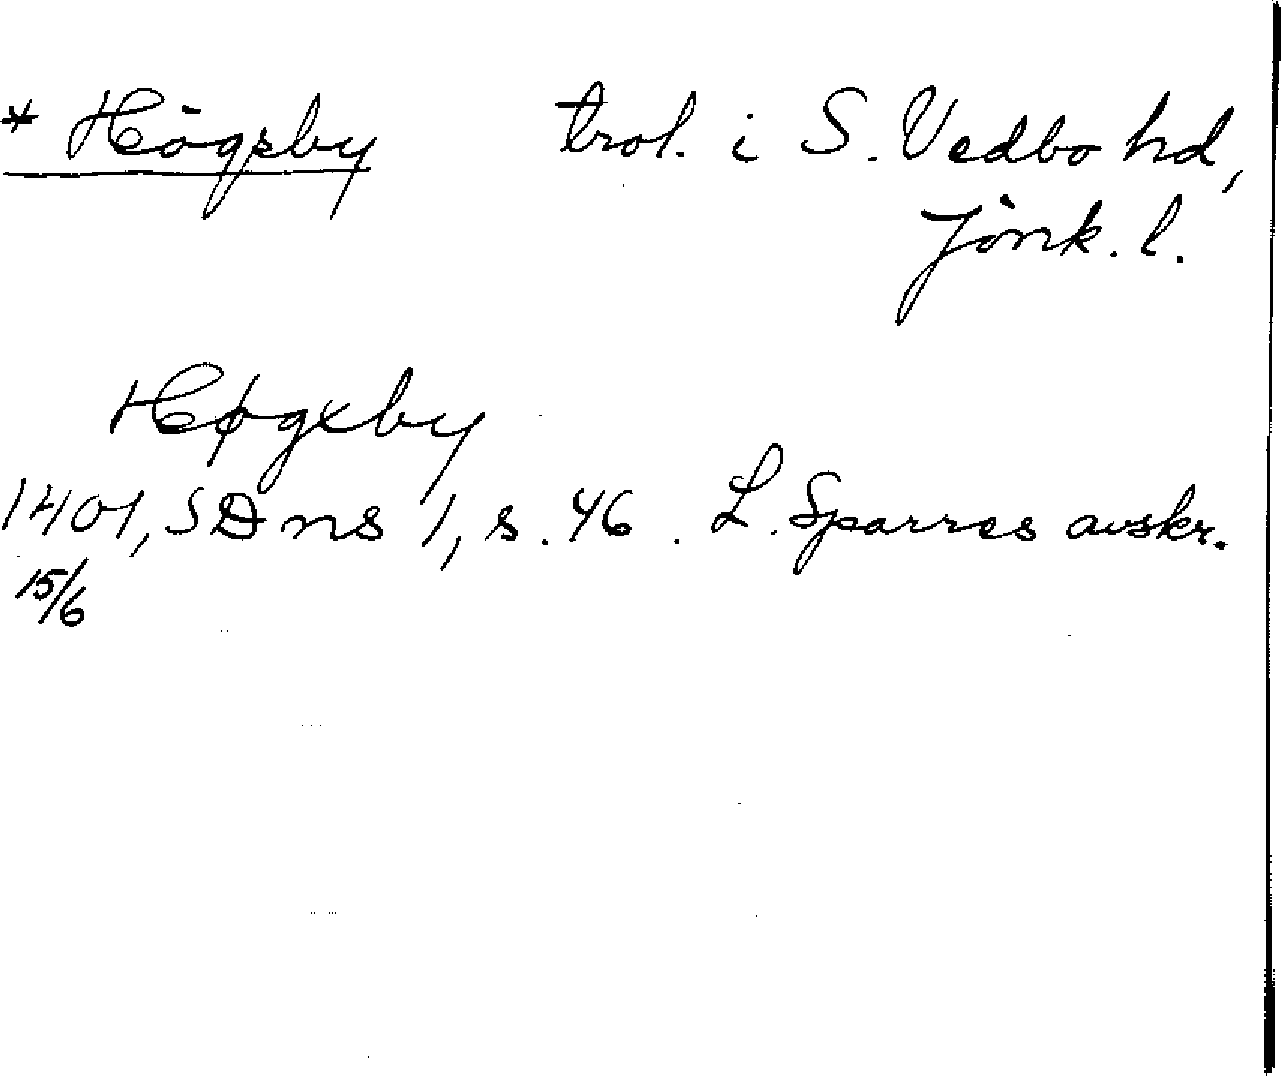 * Högsby trol. i S. Vedbo hd,
Jönk. l.
Høgxby
1401, SDns 1, s. 46. L. Sparres avskr.
15/6